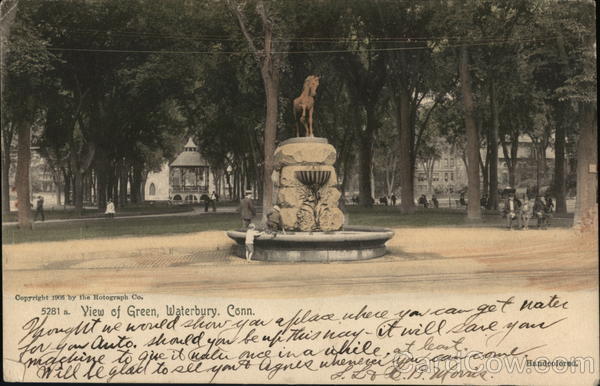 Copyright 1905 by the Rotograph Co.
5281 a. View of Green, Waterbury. Conn.
Thought we would show you a place where you can get water
for you Auto. should you be up this way - it will save your
machine to give it water once in a while, at least.
Will be glad to see you & Agnes whenever you can come.
Handcolored.
CardCow.com